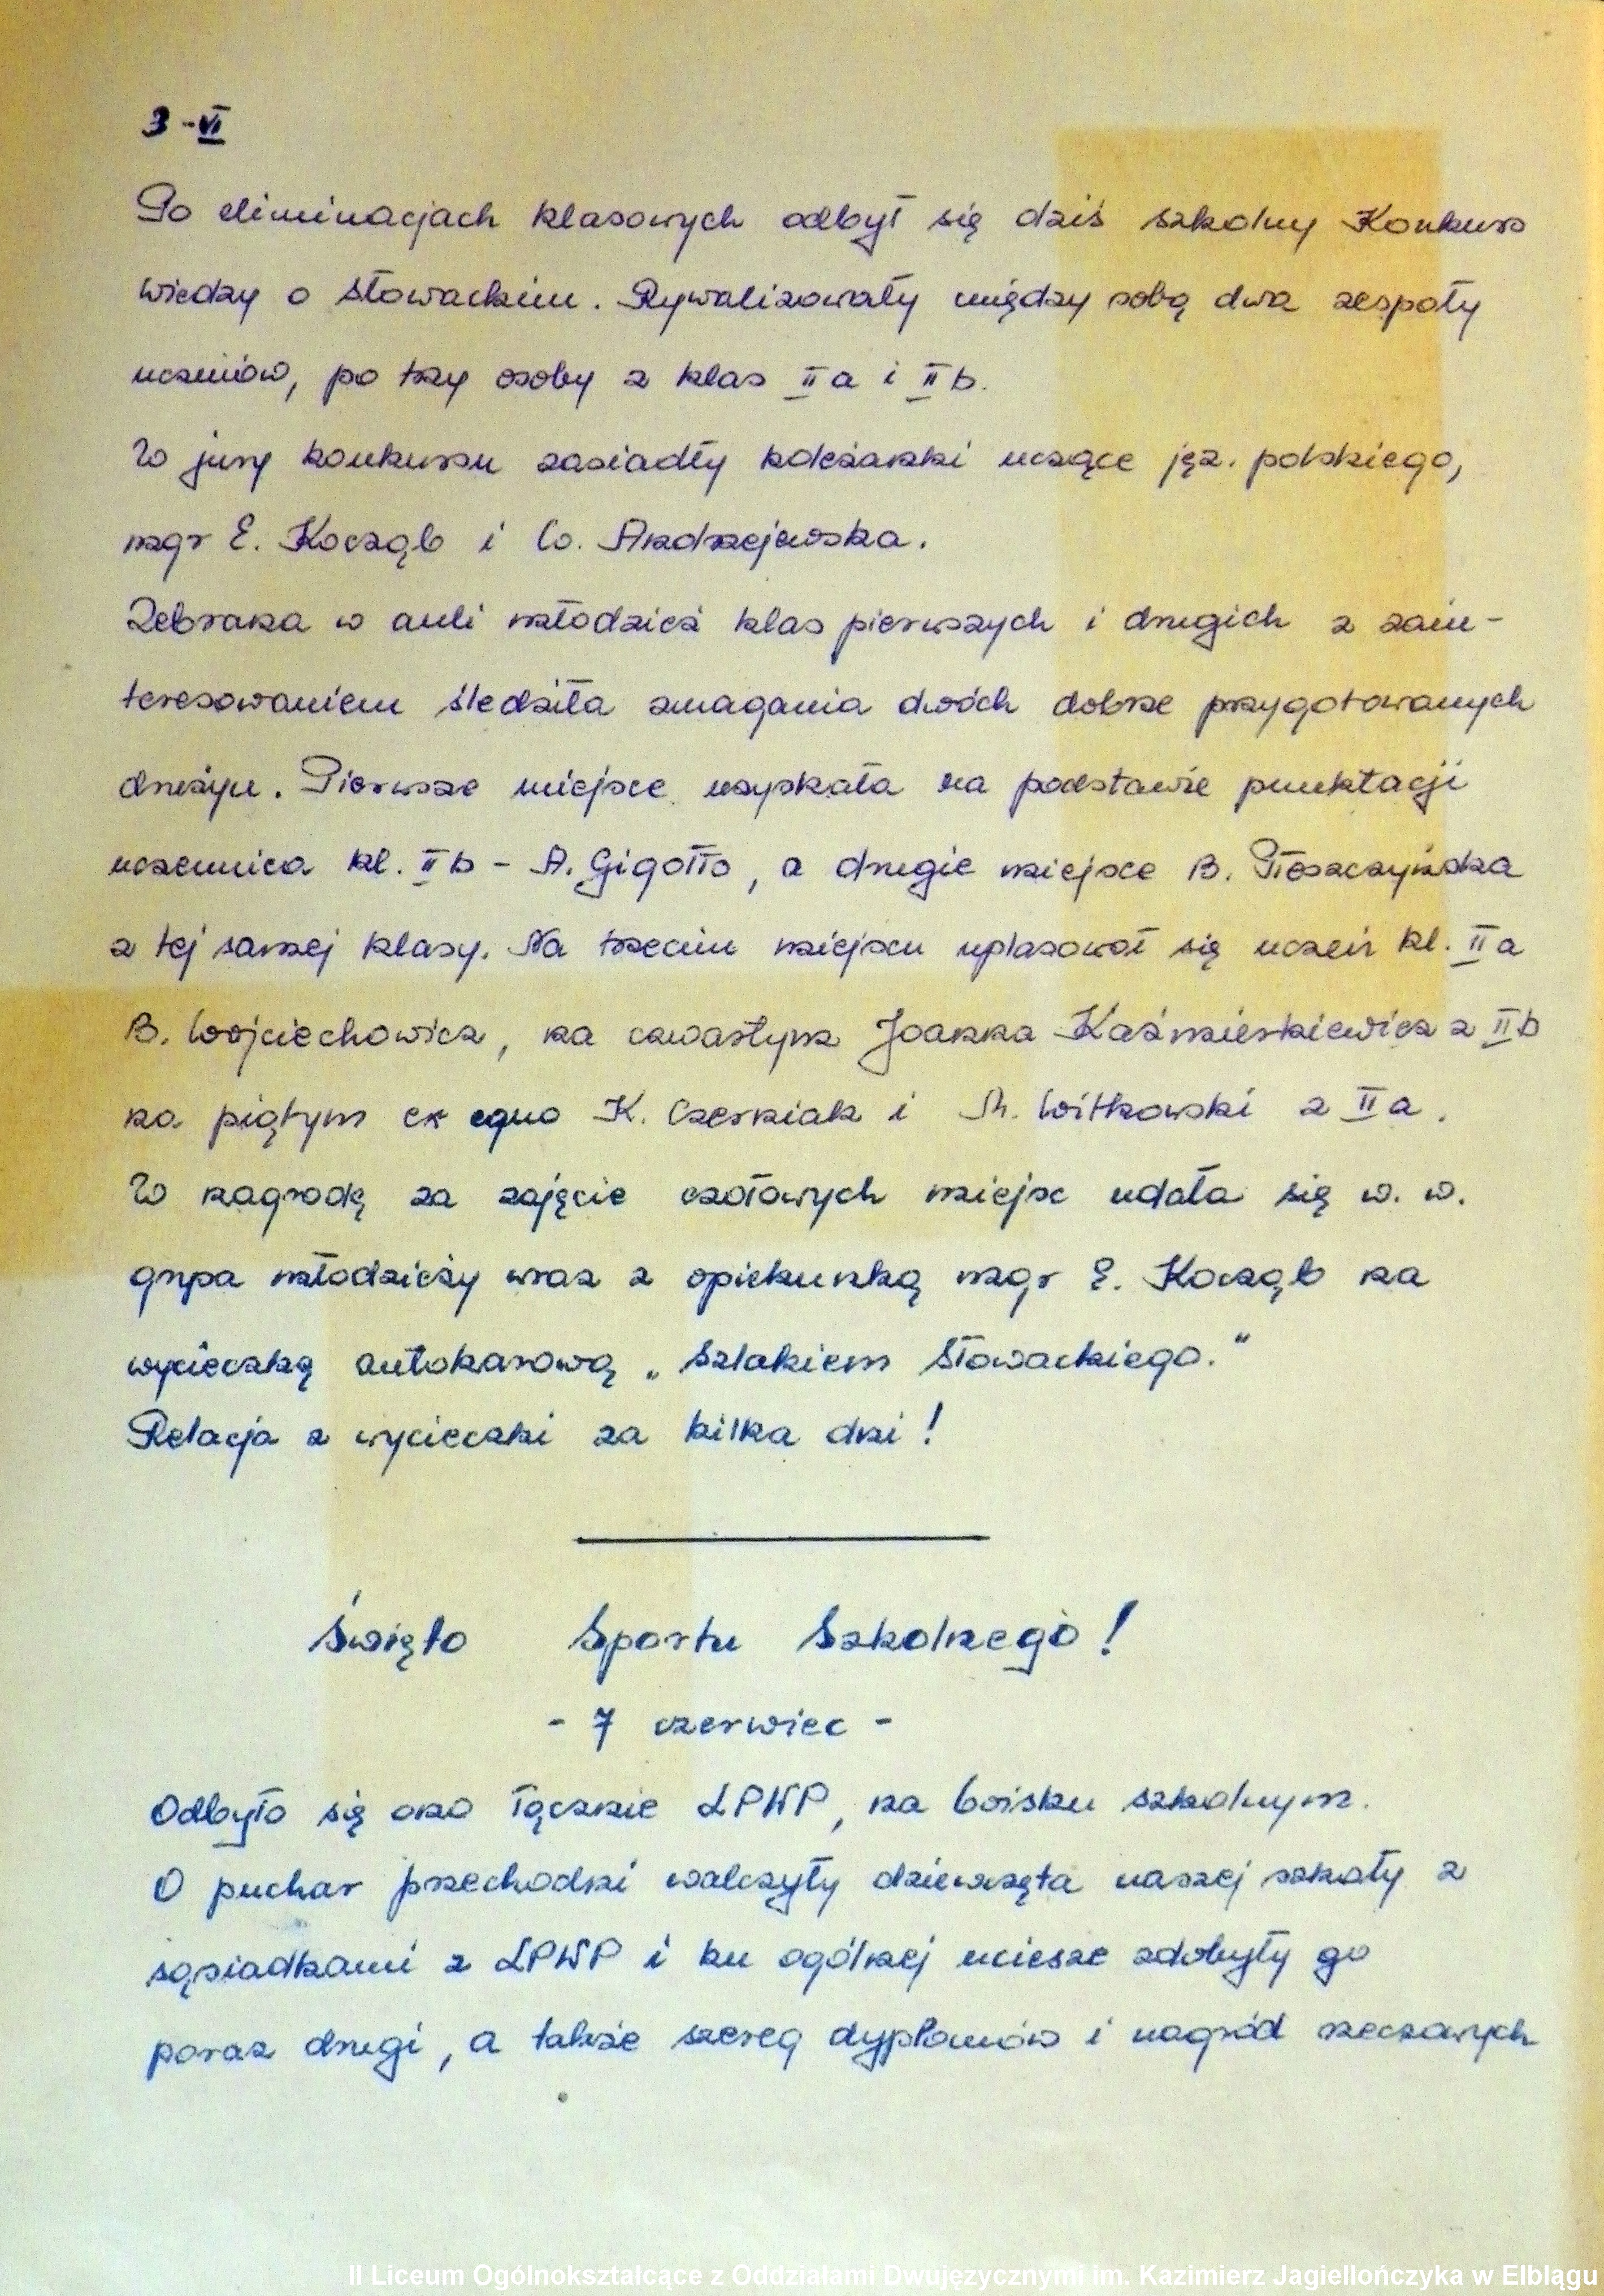 3-VI
Po eliminacjach klasowych odbył się dziś szkolny Konkurs
wiedzy o Słowackim. Rywalizowały między sobą dwa zespoły
uczniów, po trzy osoby z klas II a i II b.
W jury konkursu zasiadły koleżanki uczące jęz. polskiego,
mgr E. Kocząb i W. Andrzejewska.
Zebrana w auli młodzież klas pierwszych i drugich z zain-
teresowaniem śledziła zmagania dwóch dobrze przygotowanych
drużyn. Pierwsze miejsce uzyskała na podstawie punktacji
uczennica kl. II b - A. Gigołło, a drugie miejsce B. Płoszczyńska
z tej samej klasy. Na trzecim miejscu uplasował się uczeń kl. II a
B. Wojciechowicz, na czwartym Joanna Kaźmierkiewicz z II b
na piątym ex equo K. Czerniak i M. Witkowski z II a.
W nagrodę za zajęcie czołowych miejsc udała się w. w.
grupa młodzieży wraz z opiekunką mgr E. Kocząb na
wycieczkę autokarową „Szlakiem Słowackiego."
Relacja z wycieczki za kilka dni!
Święto Sportu Szkolnego!
- 7 czerwiec -
Odbyło się ono łącznie LPWP, na boisku szkolnym.
O puchar przechodni walczyły dziewczęta naszej szkoły z
sąsiadkami z LPWP i ku ogólnej uciesze zdobyły go
poraz drugi, a także szereg dyplomów i nagród rzeczowych
II Liceum Ogólnokształcące z Oddziałami Dwujęzycznymi im. Kazimierz Jagiellończyka w Elblągu